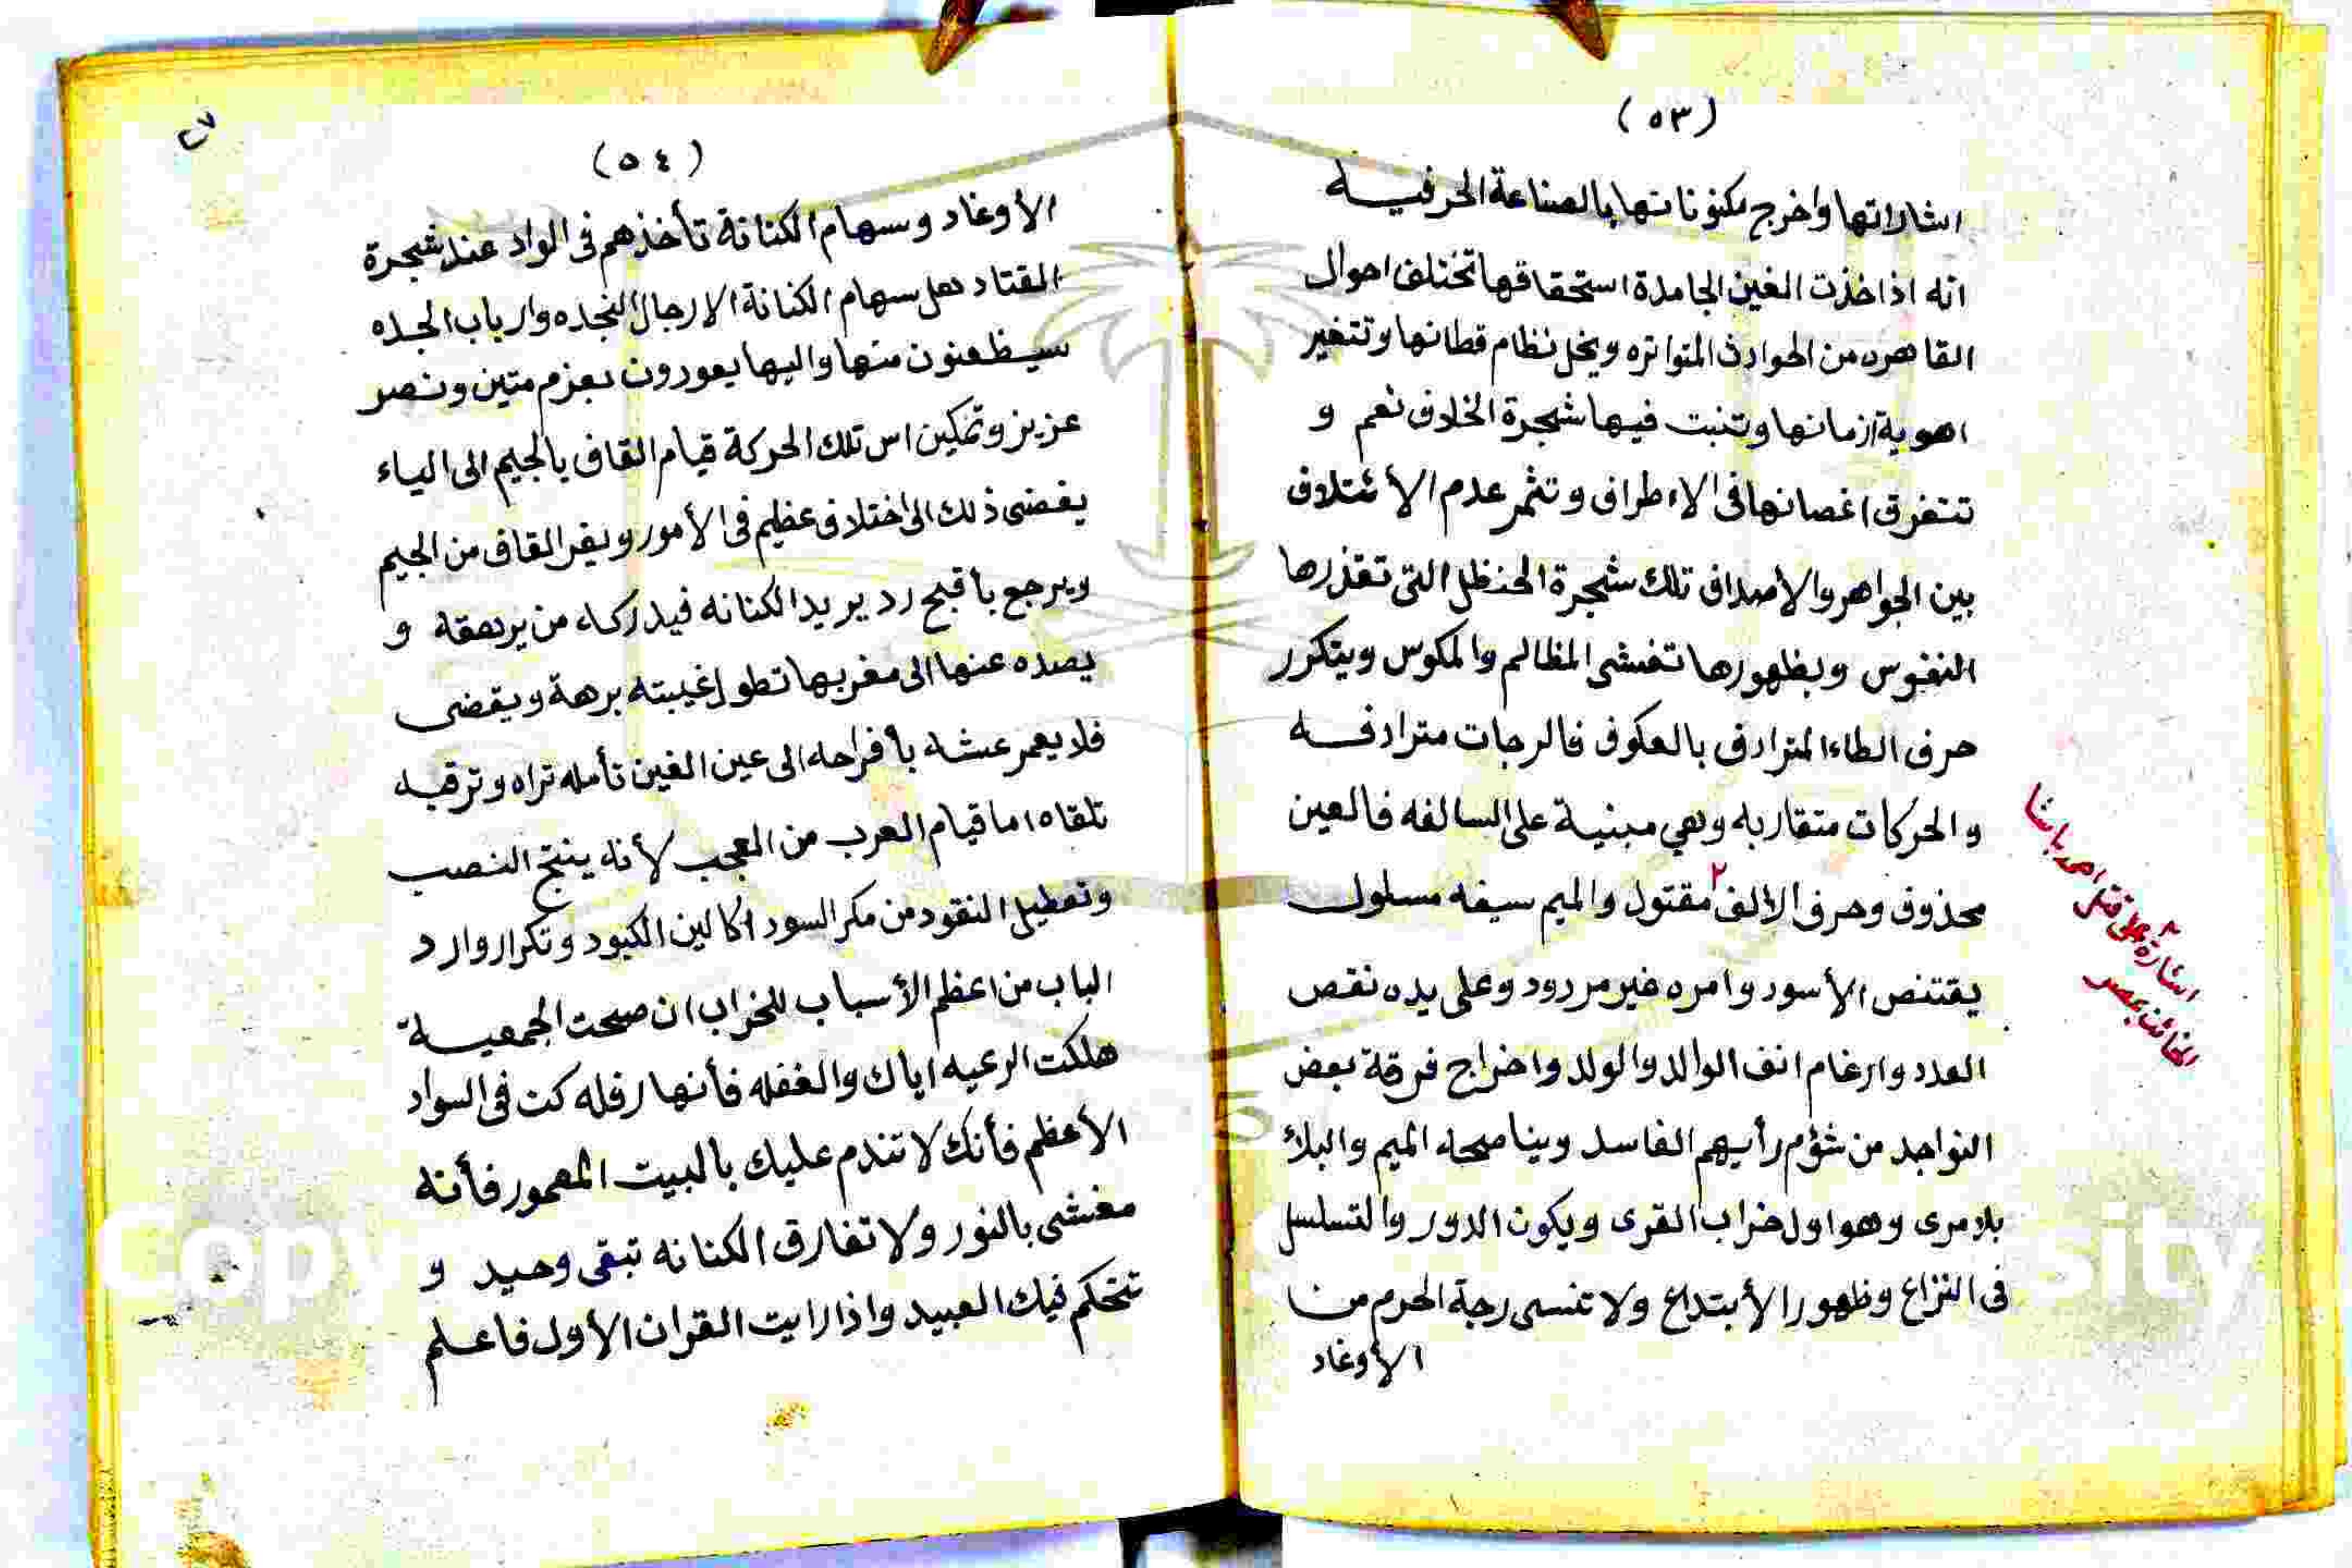 (٥٣)
اشاراتها واخرج مكنوناتها بالصناعة الحرفيه
انه اذا اخذت الغين الجامدة استحقاقها تختلف احوال
القاهره من الحوادث المتواتره ويخل نظام قطانها وتتغير
اهوية ازمانها وتنبت فيها شجرة الخلاف نعم و
تتفرق اغصانها فى الاطراف وتثمر عدم الأئتلاف
بين الجواهر والأصداف تلك شجرة الحنظل التى تقذرها
النفوس وبظهورها تفشى المظالم والمكوس ويتكرر
حرف الطاء المترادف بالعكوف فالرجات مترادفه
والحركات متقاربه وهي مبنية على السالفه فالعين
محذوف وحرف الالف ٢ مقتول والميم سيفه مسلول
يقتنص الأسود وامره غير مردود وعلى يده نقص
العدد وارغام انف الوالد والولد واخراج فرقة بعض
النواجد من شؤم رأيهم الفاسد ويناصحه الميم والبلاء
بلا مرى وهو اول خراب القرى ويكون الدور والتسلسل
فى النزاع وظهور الأبتداع ولا تنسى رجة الحرم من
الأوغاد
٢ اشارة على قتل احمد باشا
الخائن بمصر
٢٧
(٥٤)
الأوغاد وسهام الكنانة تأخذهم فى الواد عند شجرة
القتاد هل سهام الكنانة الا رجال النجده وارباب الجده
سيظعنون منها واليها يعودون بعزم متين ونصر
عزيز وتمكين اس تلك الحركة قيام القاف بالجيم الى الياء
يفضى ذلك الى اختلاف عظيم فى الأمور ويفر القاف من الجيم
ويرجع بأقبح رد يريد الكنانه فيدركه من يرهقه و
يصده عنها الى مغربها تطول غيبته برهة ويقضى
فلا يعمر عشه بأفراحه الى عين الغين تأمله تراه وترقبه
تلقاه اما قيام العرب من العجب لأنه ينتج النصب
وتعطيل النقود من مكر السود اكالين الكبود وتكرار وارد
الباب من اعظم الأسباب للخراب ان صحت الجمعيه
هلكت الرعيه اياك والغفله فأنها رفله كت فى السواد
الأعظم فأنك لا تندم عليك بالبيت المعمور فأنه
مغشى بالنور ولا تفارق الكنانه تبقى وحيد و
تتحكم فيك العبيد واذا رايت القران الأول فاعلم